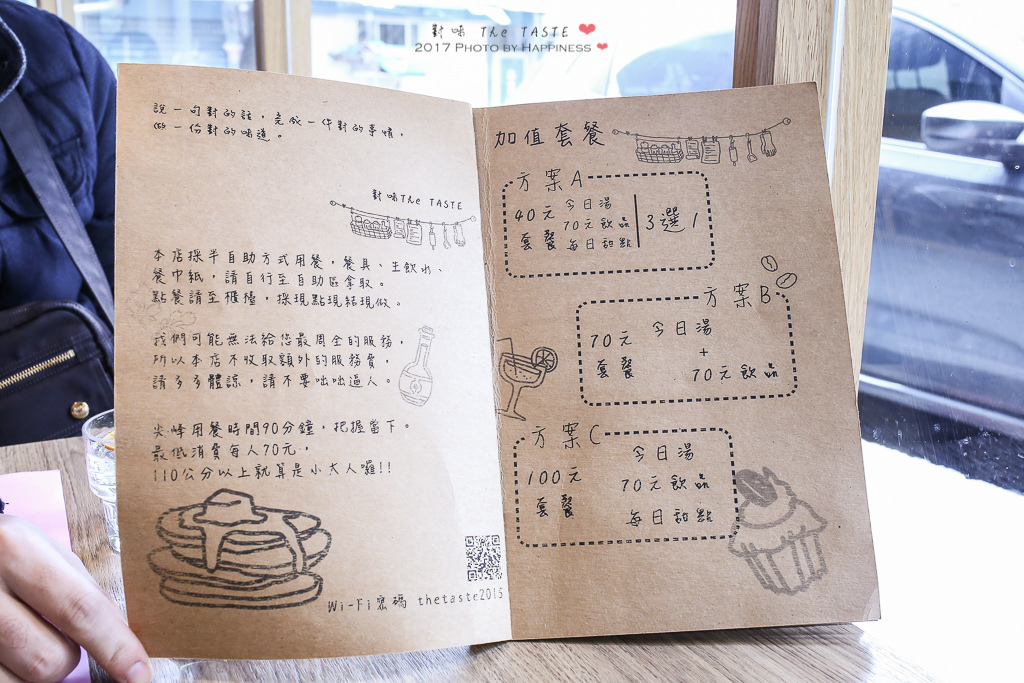 對味 The TASTE
2017 PHOTO BY HAPPINESS
說一句對的話，完成一件對的事情，
做一份對的味道。
對味The TASTE
本店採半自助方式用餐，餐具、生飲水、
餐巾紙，請自行至自助區拿取。
點餐請至櫃檯，採現點現結現做。
我們可能無法給您最周全的服務，
所以本店不收取額外的服務費，
請多多體諒，請不要咄咄逼人。
尖峰用餐時間90分鐘，把握當下。
最低消費每人70元，
110公分以上就算是小大人囉!!
Wi-Fi密碼 thetaste2015
加值套餐
方案A
40元
套餐
今日湯
70元飲品
每日甜點
3選1
方案B
70元
套餐
今日湯
+
70元飲品
方案C
100元
套餐
今日湯
70元飲品
每日甜點